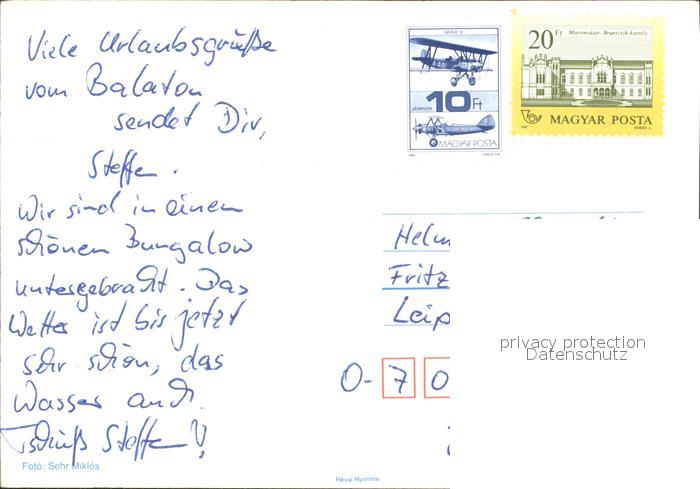 Viele Urlaubsgrüße
vom Balaton
sendet Dir,
Steffen.
Wir sind in einem
schönen Bungalow
untergebracht. Das
Wetter ist bis jetzt
sehr schön, das
Wasser auch.
Tschüß Steffen!
Fotó: Sehr Miklós
Révai Nyomda
10 Ft
MAGYAR POSTA
20 Ft
Martonvásár, Brunszvik-kastély
MAGYAR POSTA
Helm
Fritz
Leip
O-70
privacy protection
Datenschutz